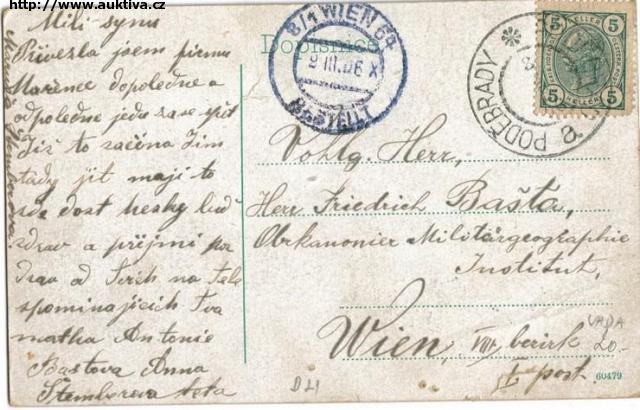 http://www.auktiva.cz
Milí synu
Přivezla jsem firmu
Marence dopoledne a
odpoledne jedu zase zpět
Již to začína Jim
tady jít mají to
zde dost hezky buď
zdrav a přijmi po
zdrav od Svých na tebe
spominajicich Tva
matka Antonie
Bastova Anna
Štemberova teta
Dopisnice
8/1 WIEN 64
2 III 06 X
BESTELLT
PODĚBRADY
5 HELLER 5
5 HELLER 5
Vohlg. Herr,
Herr Friedrich Bašta,
Obrkanonier Militärgeographie
Institut,
Wien, VIII berirk
I post.
VADA
20.-
D41
60479